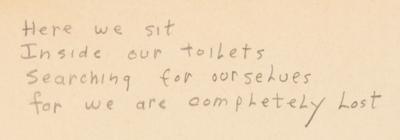 Here we sit
Inside our toilets
Searching for ourselves
for we are completely lost